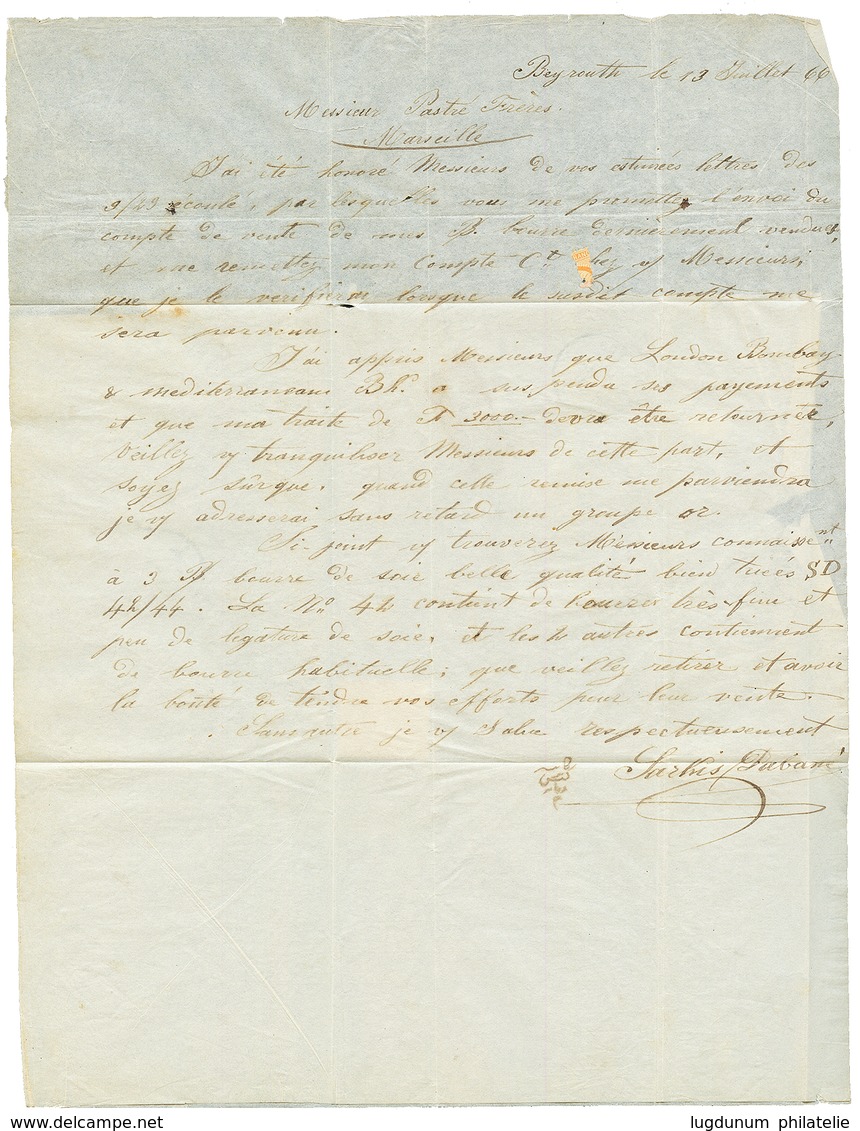 Beyrouth le 13 Juillet 66
Messieur Pastré Frères.
Marseille
J'ai été honoré Messieurs de vos estimées lettres des
9/29 écoulé, par lesquelles vous me promettez l'envoi du
compte de vente de mes B. bourre dernierement vendues,
et me remettez mon Compte Ct chez v/ Messieurs,
que je le verifierai lorsque le susdit compte me
sera parvenu.
J'ai appris Messieurs que London Bombay
& mediterranean Bk. a suspendu ses payements
et que ma traite de 3000.- devra être retournée,
Veillez y tranquiliser Messieurs de cette part, et
soyez sûr que, quand cette remise me parviendra
je v/ adresserai sans retard un groupe or.
Si-joint v/ trouverez Messieurs connaissent
à 3 B bourre de soie belle qualité bien triées SD
42/44. La No 42 contient de bourre très-fine et
peu de legature de soie, et les 2 autres contiennent
de bourre habituelle; que veillez retirer et avoir
la bonté de tendre vos efforts pour leur vente.
Sans autre je v/ salue respectueusement
Sarkis Dabané
lugdunum philatelie